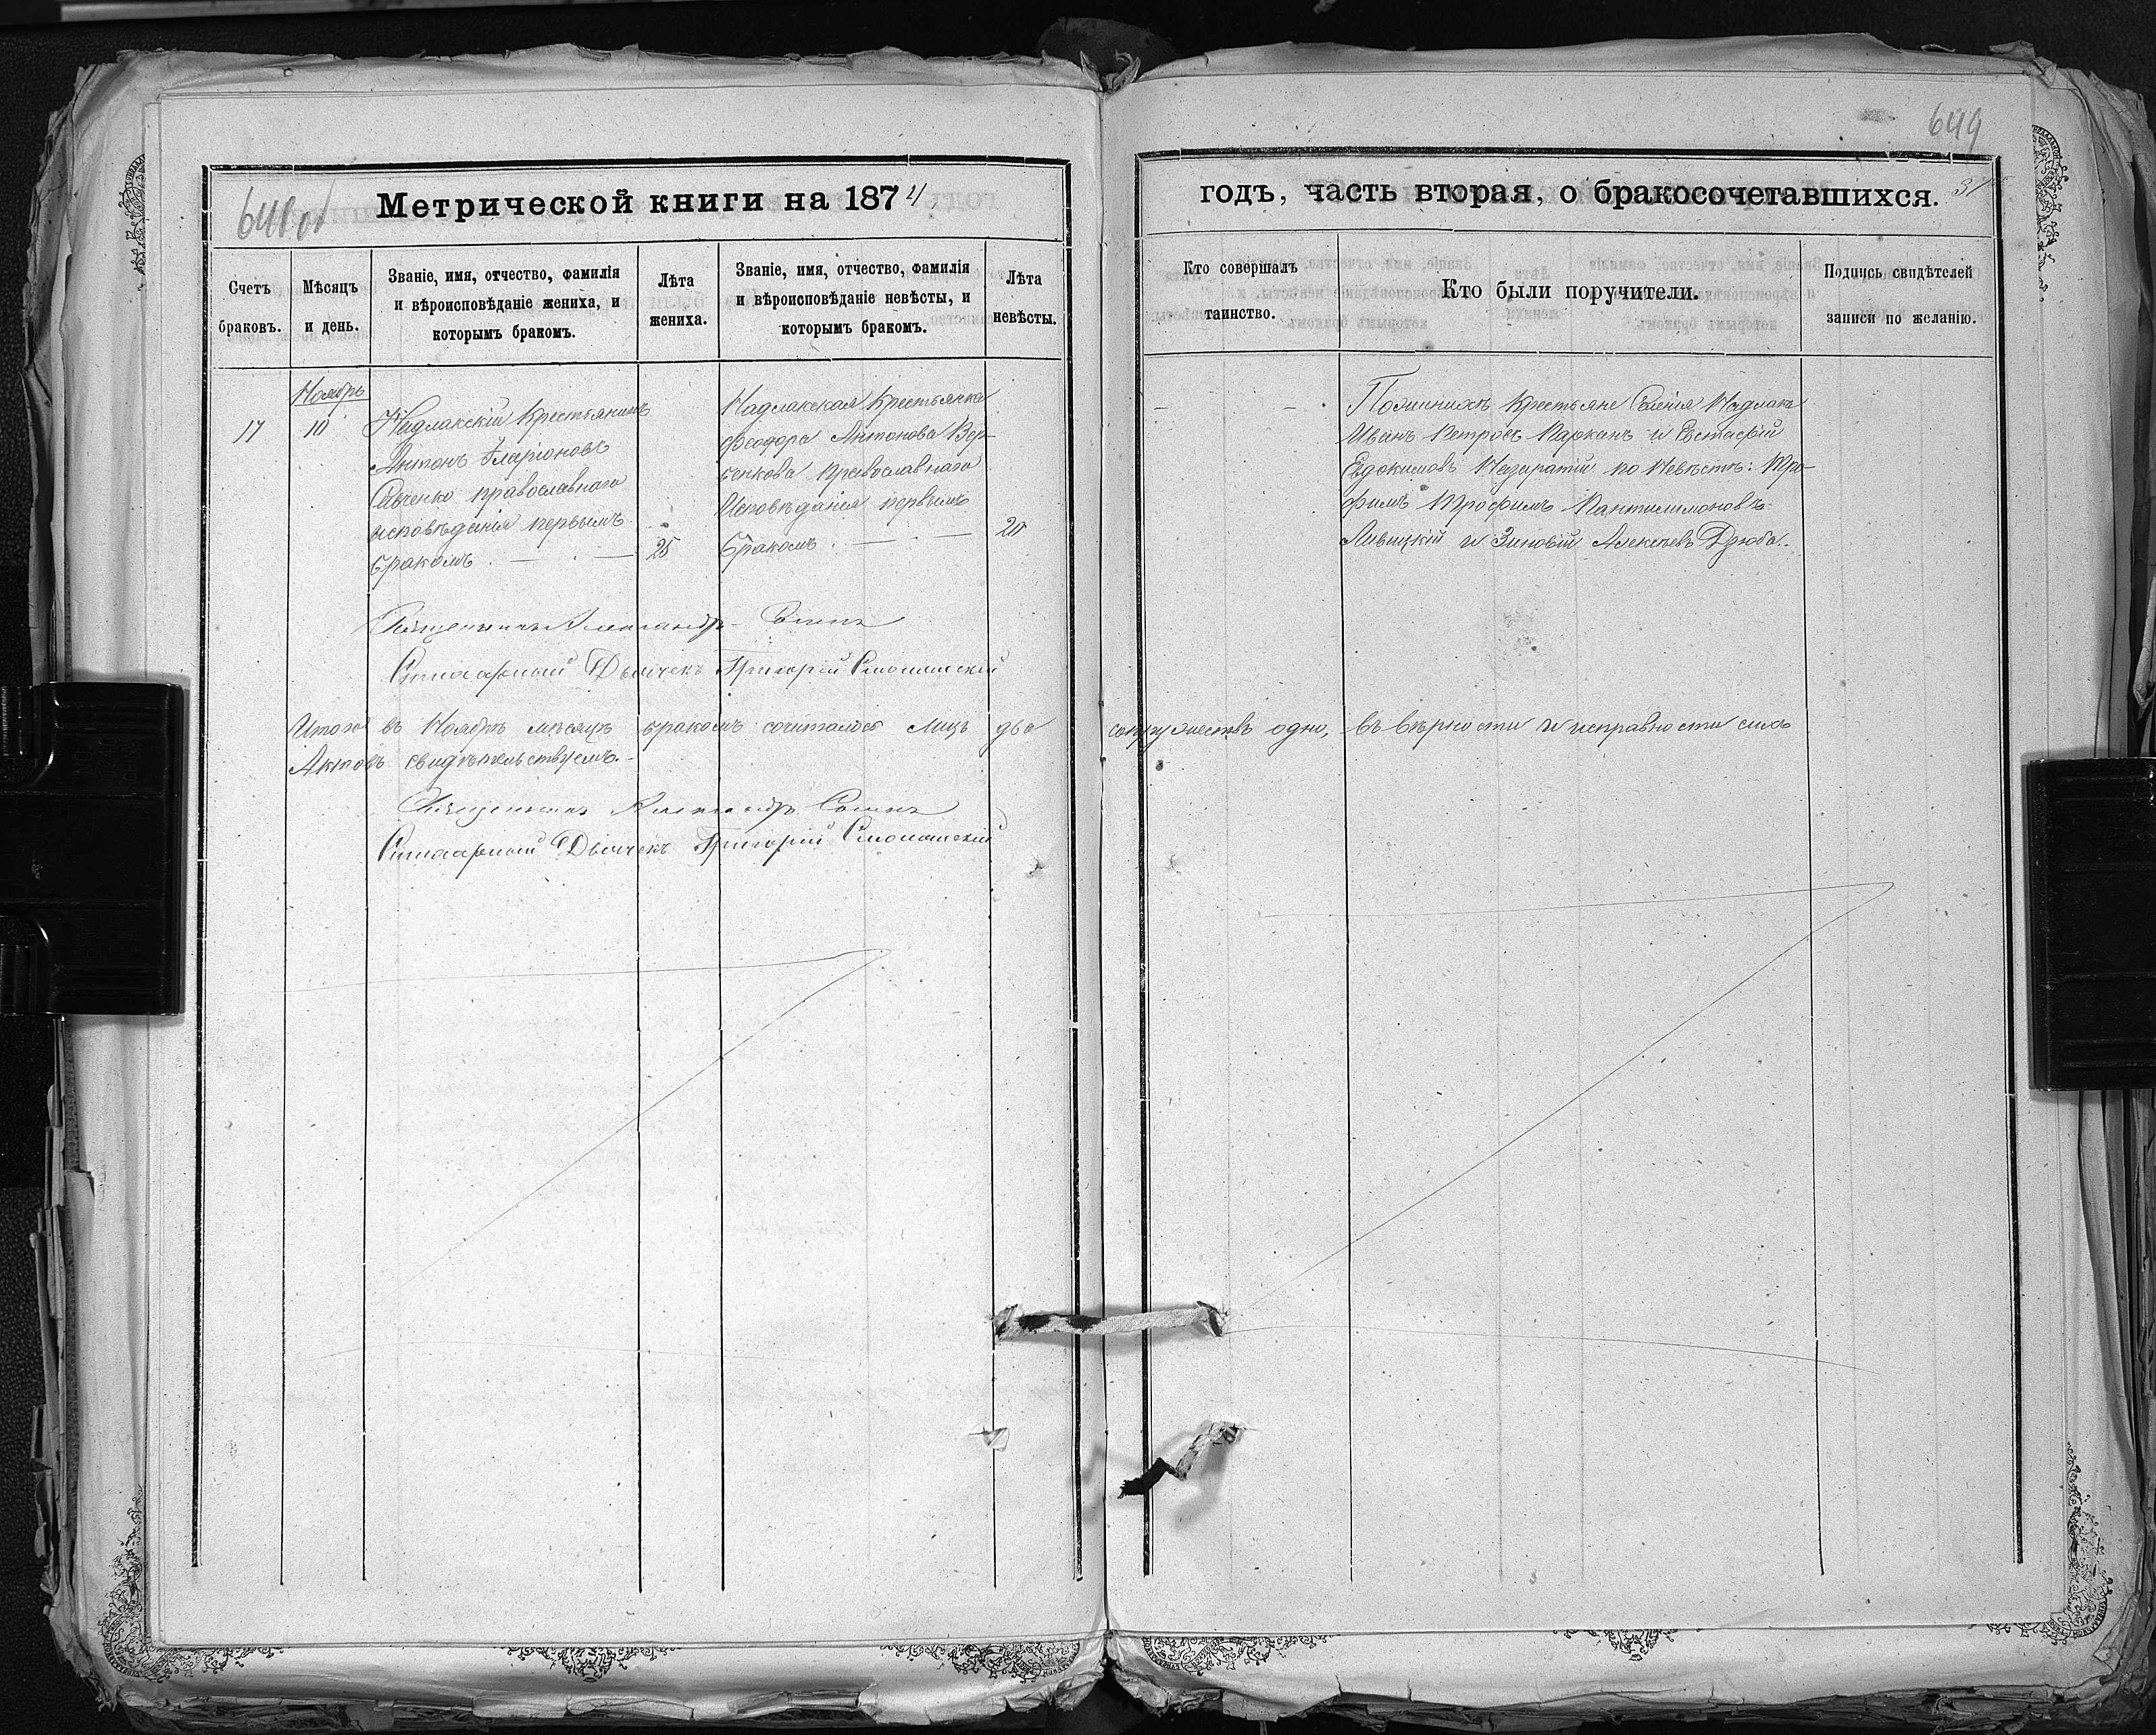 649
648 об
Метрической книги на 1874
годъ, часть вторая, о бракосочетавшихся.
37
Счетъ браковъ.
Мѣсяцъ и день.
Званіе, имя, отчество, фамилія
и вѣроисповѣданіе жениха, и
которымъ бракомъ.
Лѣта жениха.
Званіе, имя, отчество, фамилія
и вѣроисповѣданіе невѣсты, и
которымъ бракомъ.
Лѣта невѣсты.
Кто совершалъ
таинство.
Кто были поручители.
Подпись свидѣтелей
записи по желанію.
Ноябрь
17
10
Надлакскій Крестьянинъ
Антонъ Иларіоновъ
Савченко православнаго
исповѣданія первымъ
бракомъ.
25
Надлакская Крестьянка
Феодора Антонова Вер-
бенкова православнаго
Исповѣданія первымъ
бракомъ.
20
По женихѣ Крестьяне Селенія Надлака
Иванъ Петровъ Паркань и Евстафій
Евдокимовъ Назаратій по Невѣстѣ: Тро-
фимъ Трофимъ Пантилимоновъ
Ливицкій и Зиновій Алексѣевъ Дзюба.
Священникъ Александръ
Стихарный Дьячекъ Григорій
Итого въ Ноябрѣ мѣсяцѣ бракомъ сочиталось лицъ два супружествъ одно, въ вѣрности и исправности сихъ
Актовъ свидѣтельствуемъ.
Священникъ Александръ
Стихарный Дьячекъ Григорій